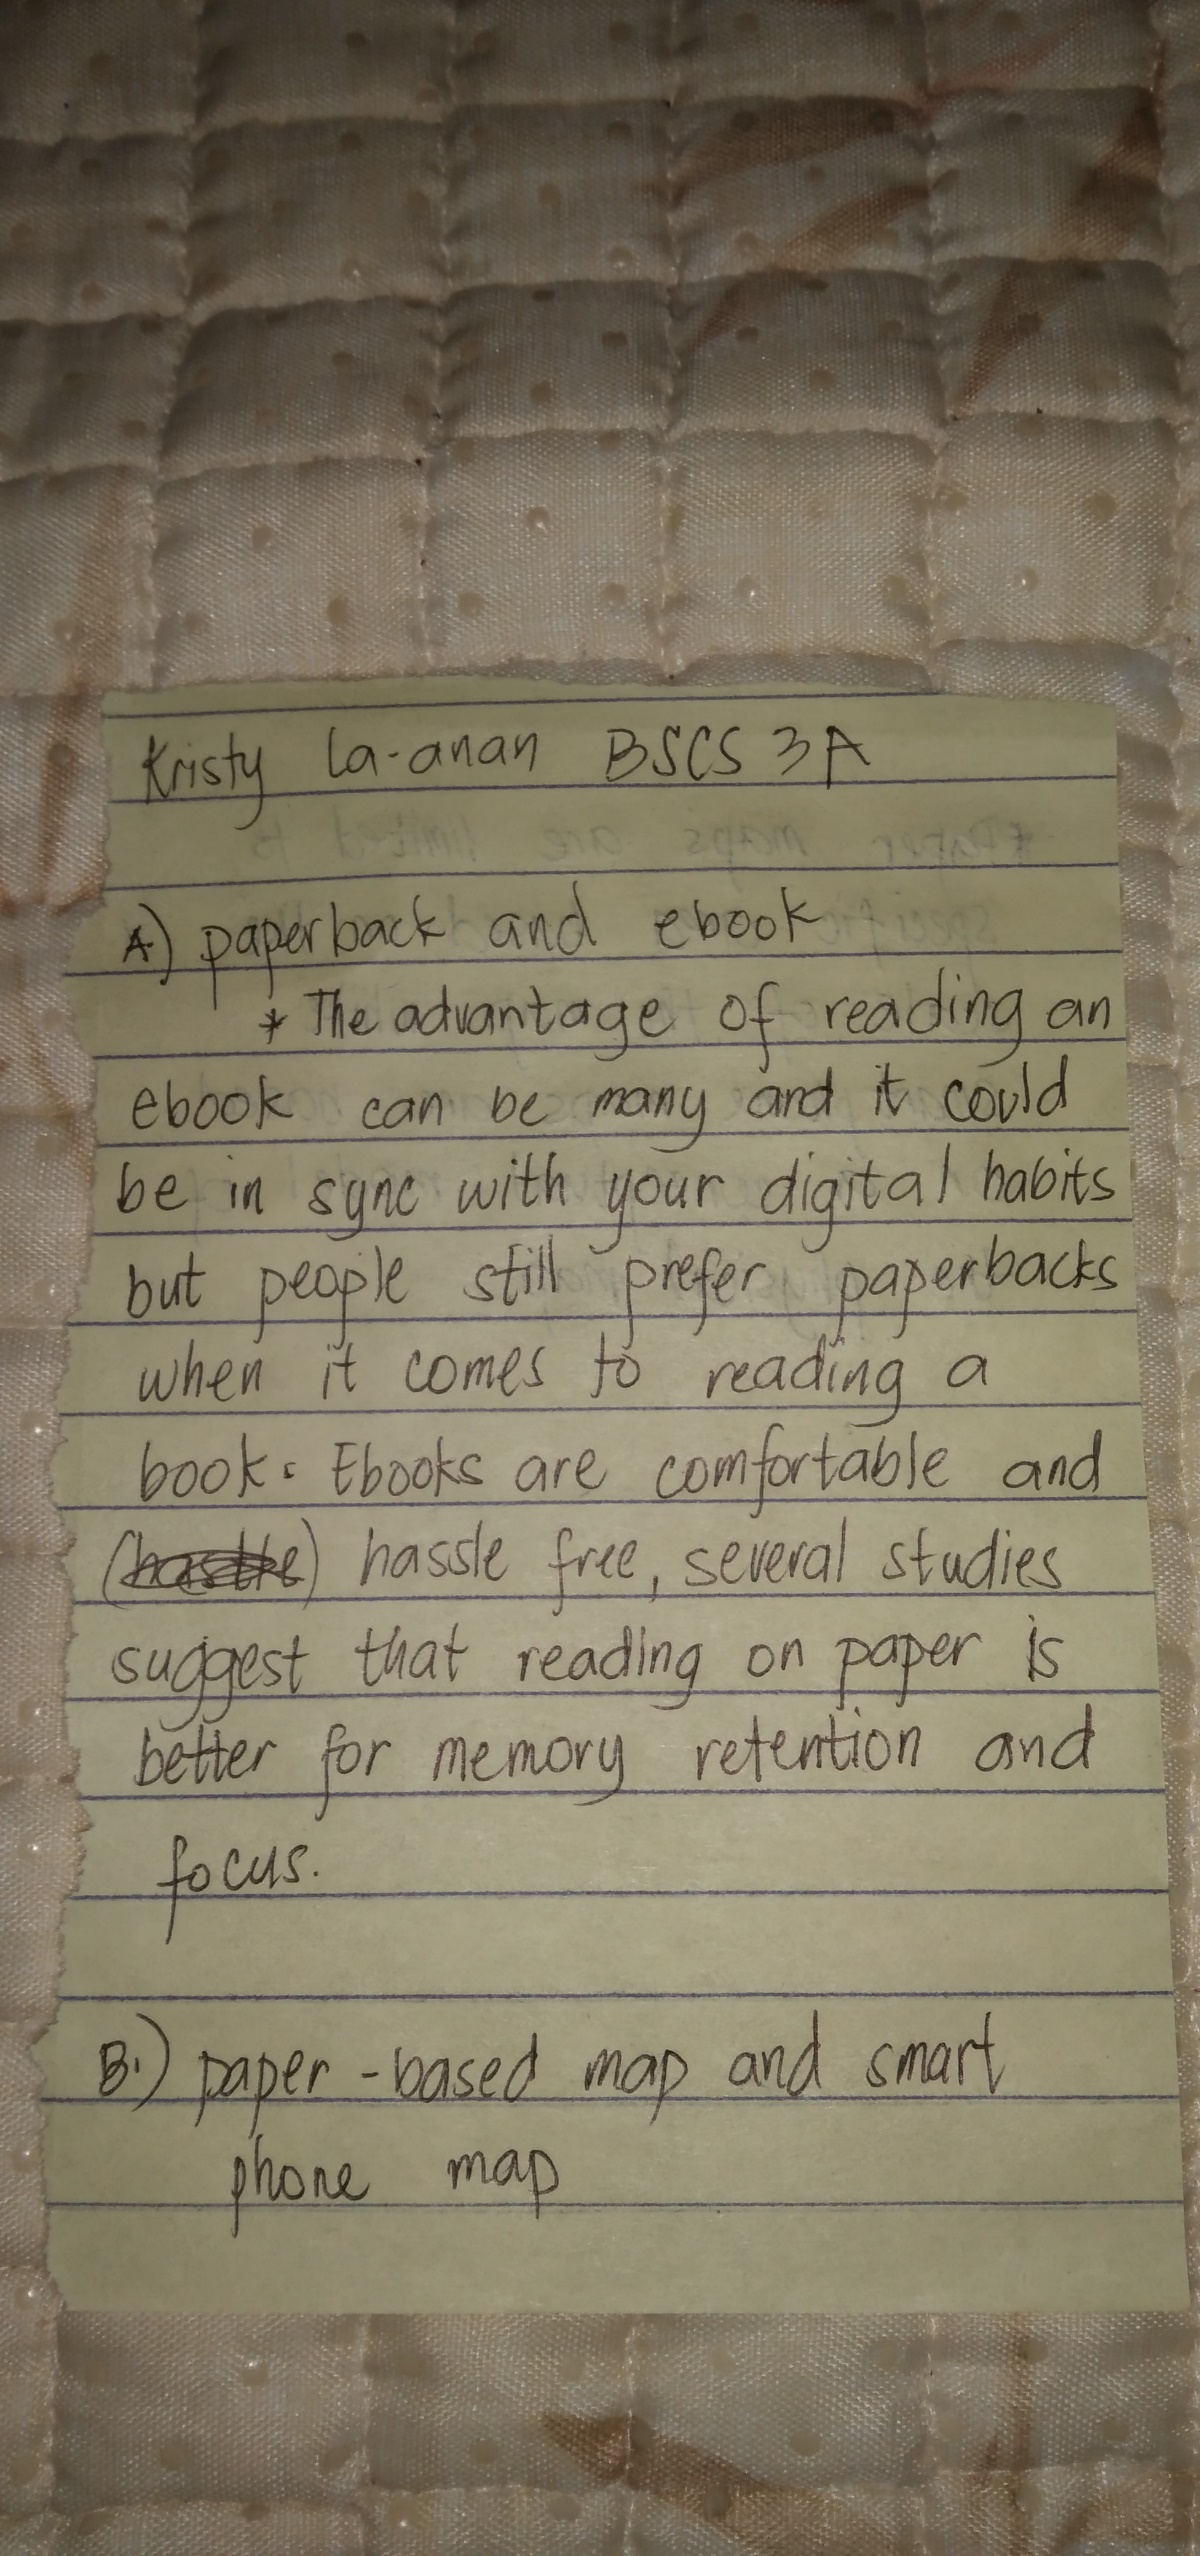 Kristy la-anan BSCS 3A
A.) paperback and ebook
* The advantage of reading an
ebook can be many and it could
be in sync with your digital habits
but people still prefer paperbacks
when it comes to reading a
book. Ebooks are comfortable and
( ) hassle free, several studies
suggest that reading on paper is
better for memory retention and
focus.
B.) paper-based map and smart
phone map